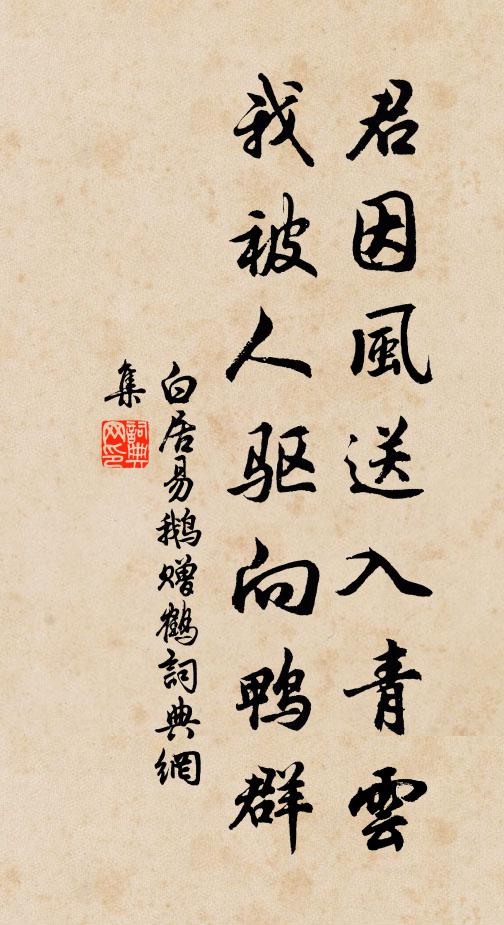 君因風送入青雲
我被人驱向鸭群
白居易鹅赠鶴詞典網
集
詞典
网印